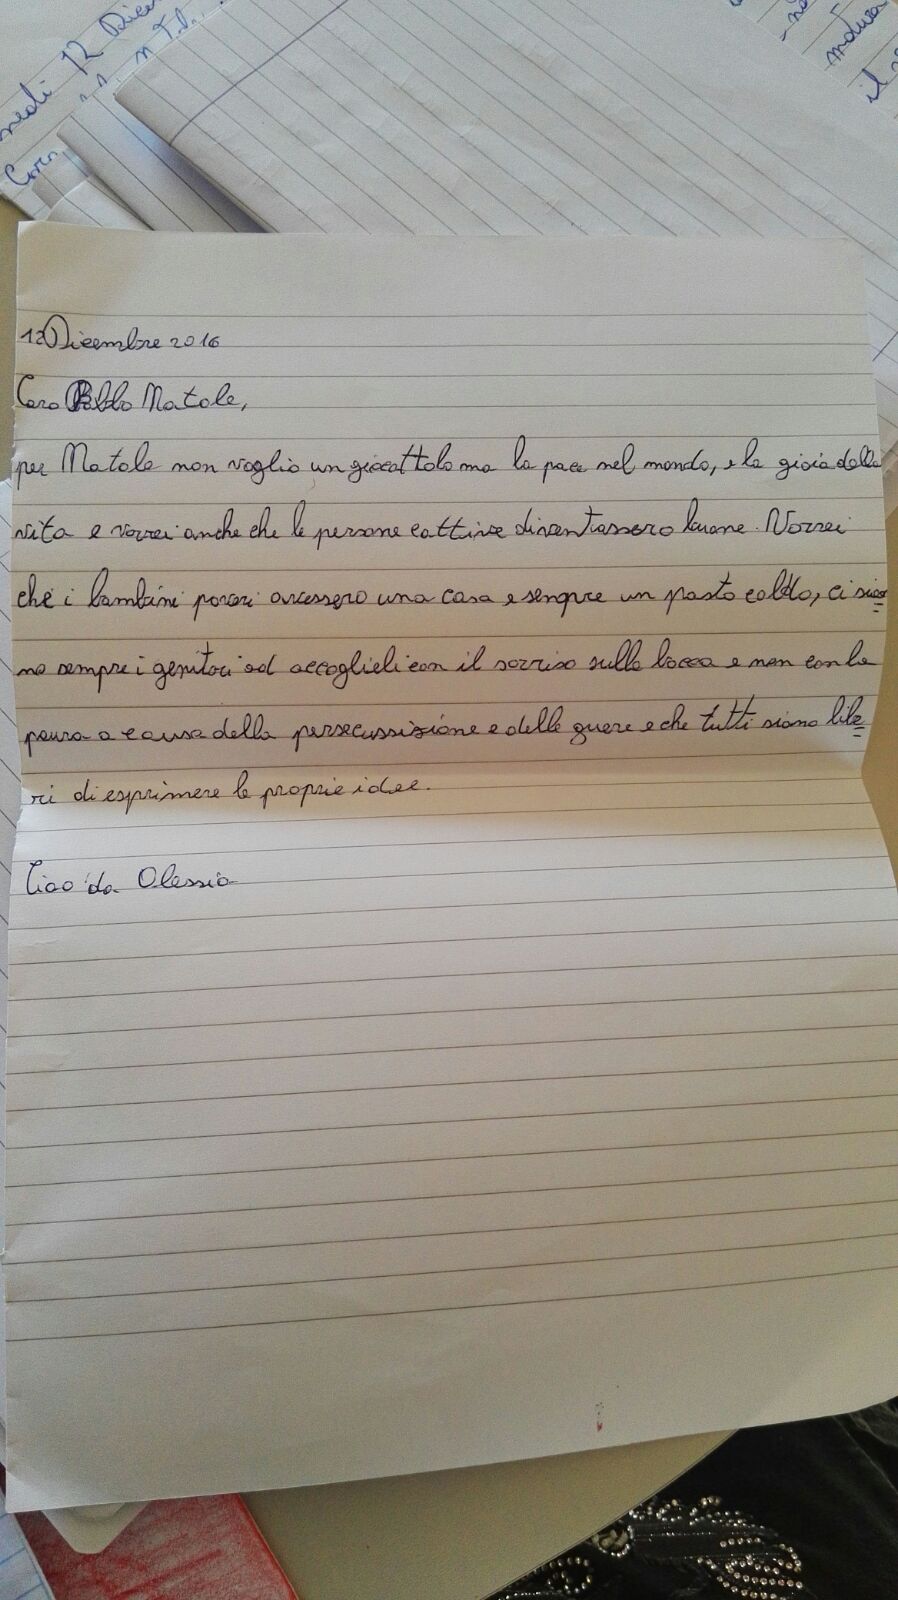 nedì 12 Dicem
12Dicembre 2016
Caro Babbo Natale,
per Natale non voglio un giocattolo ma la pace nel mondo, e la gioia della
vita e vorrei anche che le persone cattive diventassero buone. Vorrei
che i bambini poveri avessero una casa e sempre un pasto caldo, ci sia=
no sempre i genitori ad accoglieli con il sorriso sulla bocca e non con la
paura a causa della persecussizione e delle guere e che tutti siano libe=
ri di esprimere le proprie idee.
Ciao da Alessia